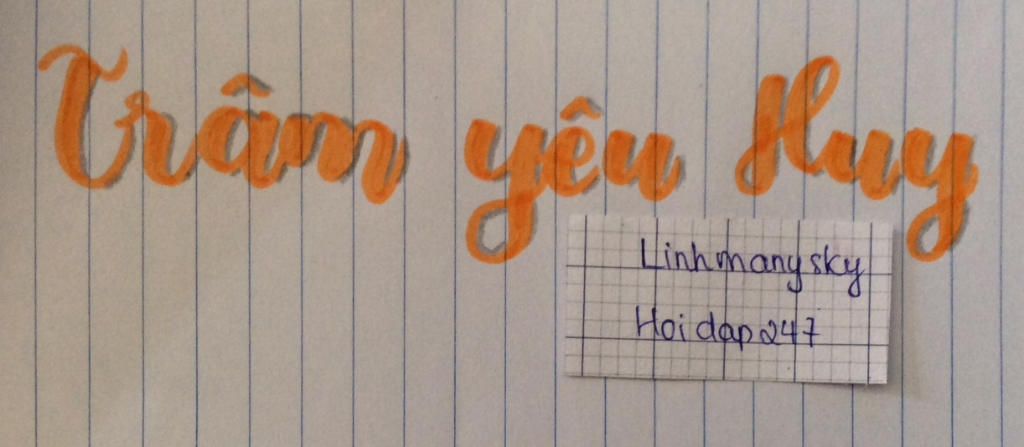 Trâm yêu Huy
Linhmanysky
Hoidap247